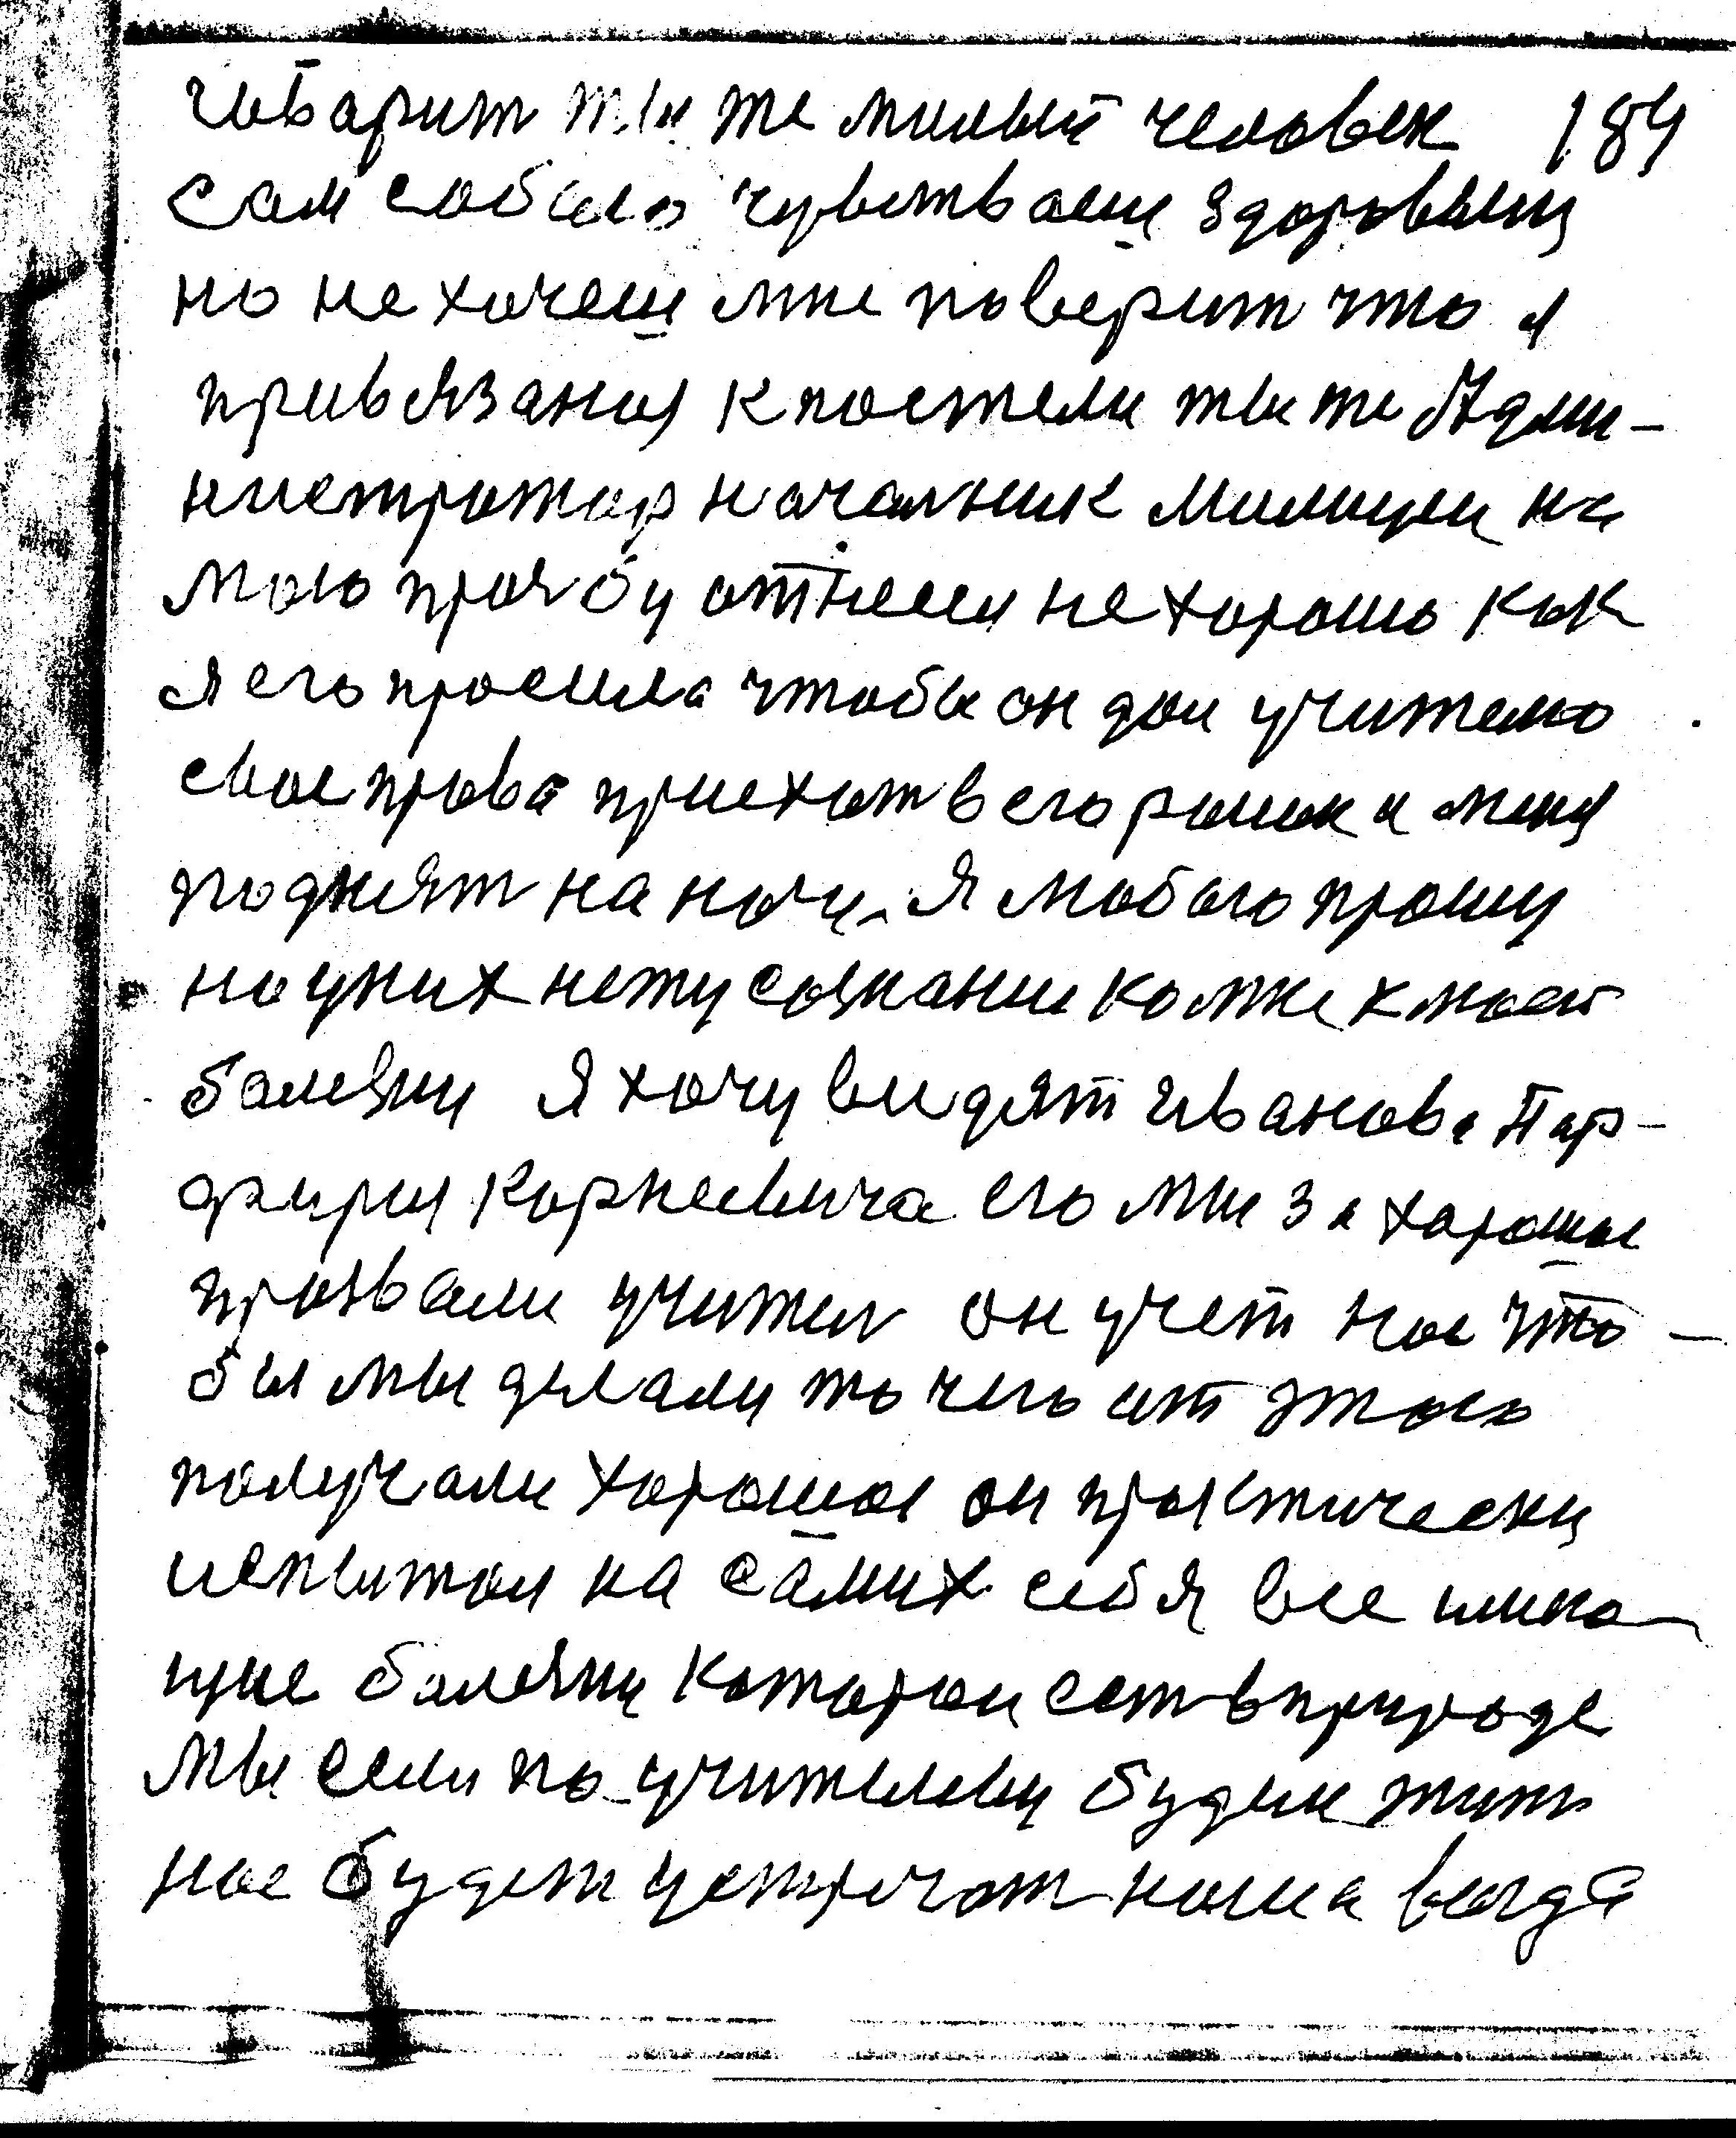 гаварит ты же милый человек 184
сам собою чувстваеш здоровым
но не хочеш мне поверит что я
привязаная к постели ты же Адми-
нистратор началник милиции на
мою прозбу отнесся не хорошо как
я его просила чтобы он дал учителю
свое права приехат в его раион и меня
поднят на ноги. Я любого прошу
но у них нету сознание ко мне к моей
болезни Я хочу видят Иванова Пар-
фирия Корнеевича его мы за хорошые
прозвали учител он учет нас что-
бы мы делали то чего от этого
получали хорошое он практически
испытал на самих себя все имею-
щие болезни каторои ест в природе
Мы если по учителеви будем жить
нас будет устречат наша всегда